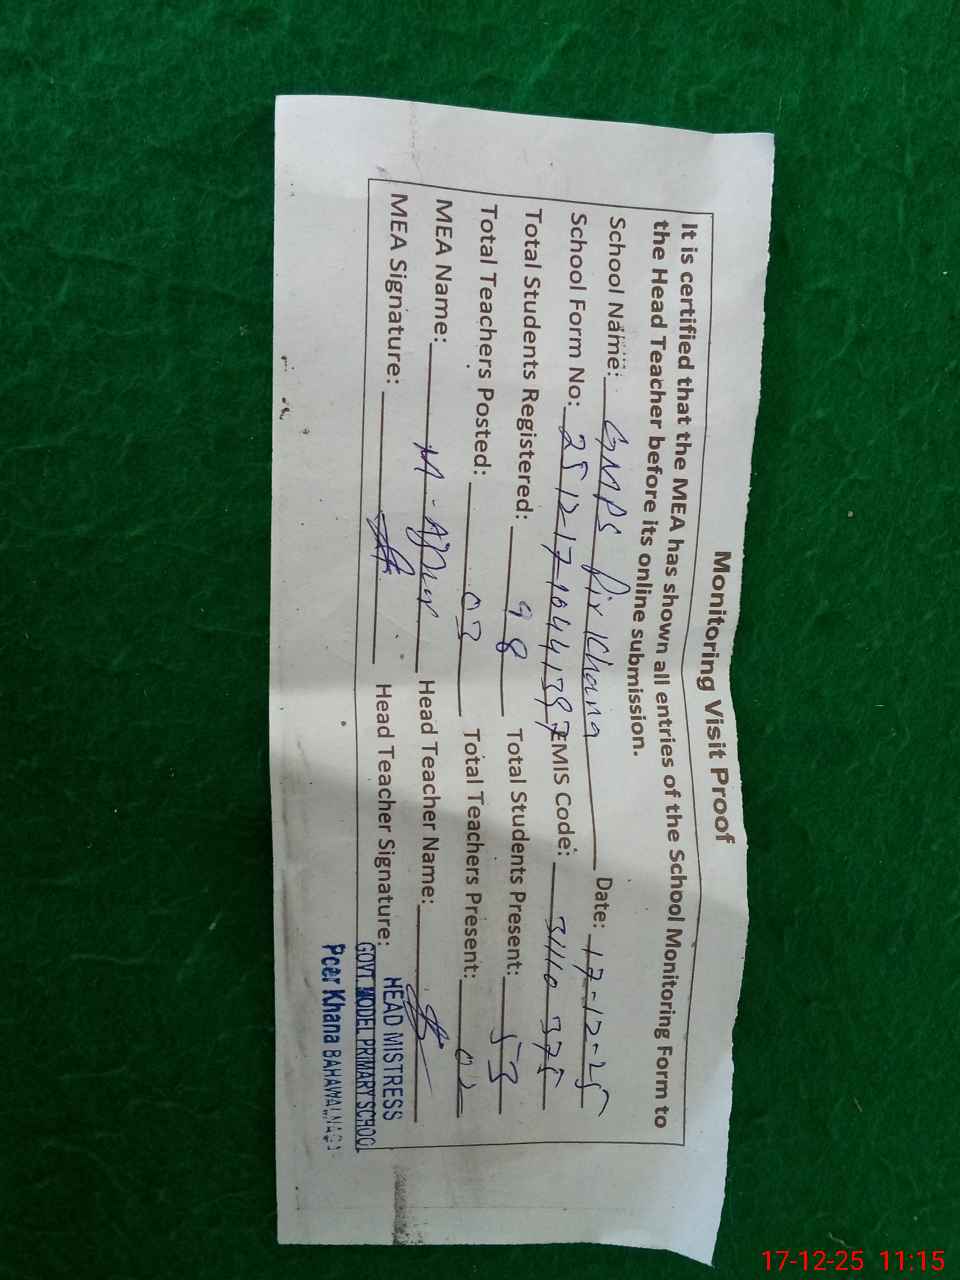 Monitoring Visit Proof
It is certified that the MEA has shown all entries of the School Monitoring Form to
the Head Teacher before its online submission.
School Name: GMPS Pir Khana Date: 17-12-25
School Form No: 25121716441397 EMIS Code: 31110375
Total Students Registered: 98 Total Students Present: 53
Total Teachers Posted: 03 Total Teachers Present: 02
MEA Name: M. Head Teacher Name:
MEA Signature: Head Teacher Signature:
HEAD MISTRESS
GOVT. MODEL PRIMARY SCHOOL
Peer Khana BAHAWALNAGAR
17-12-25 11:15